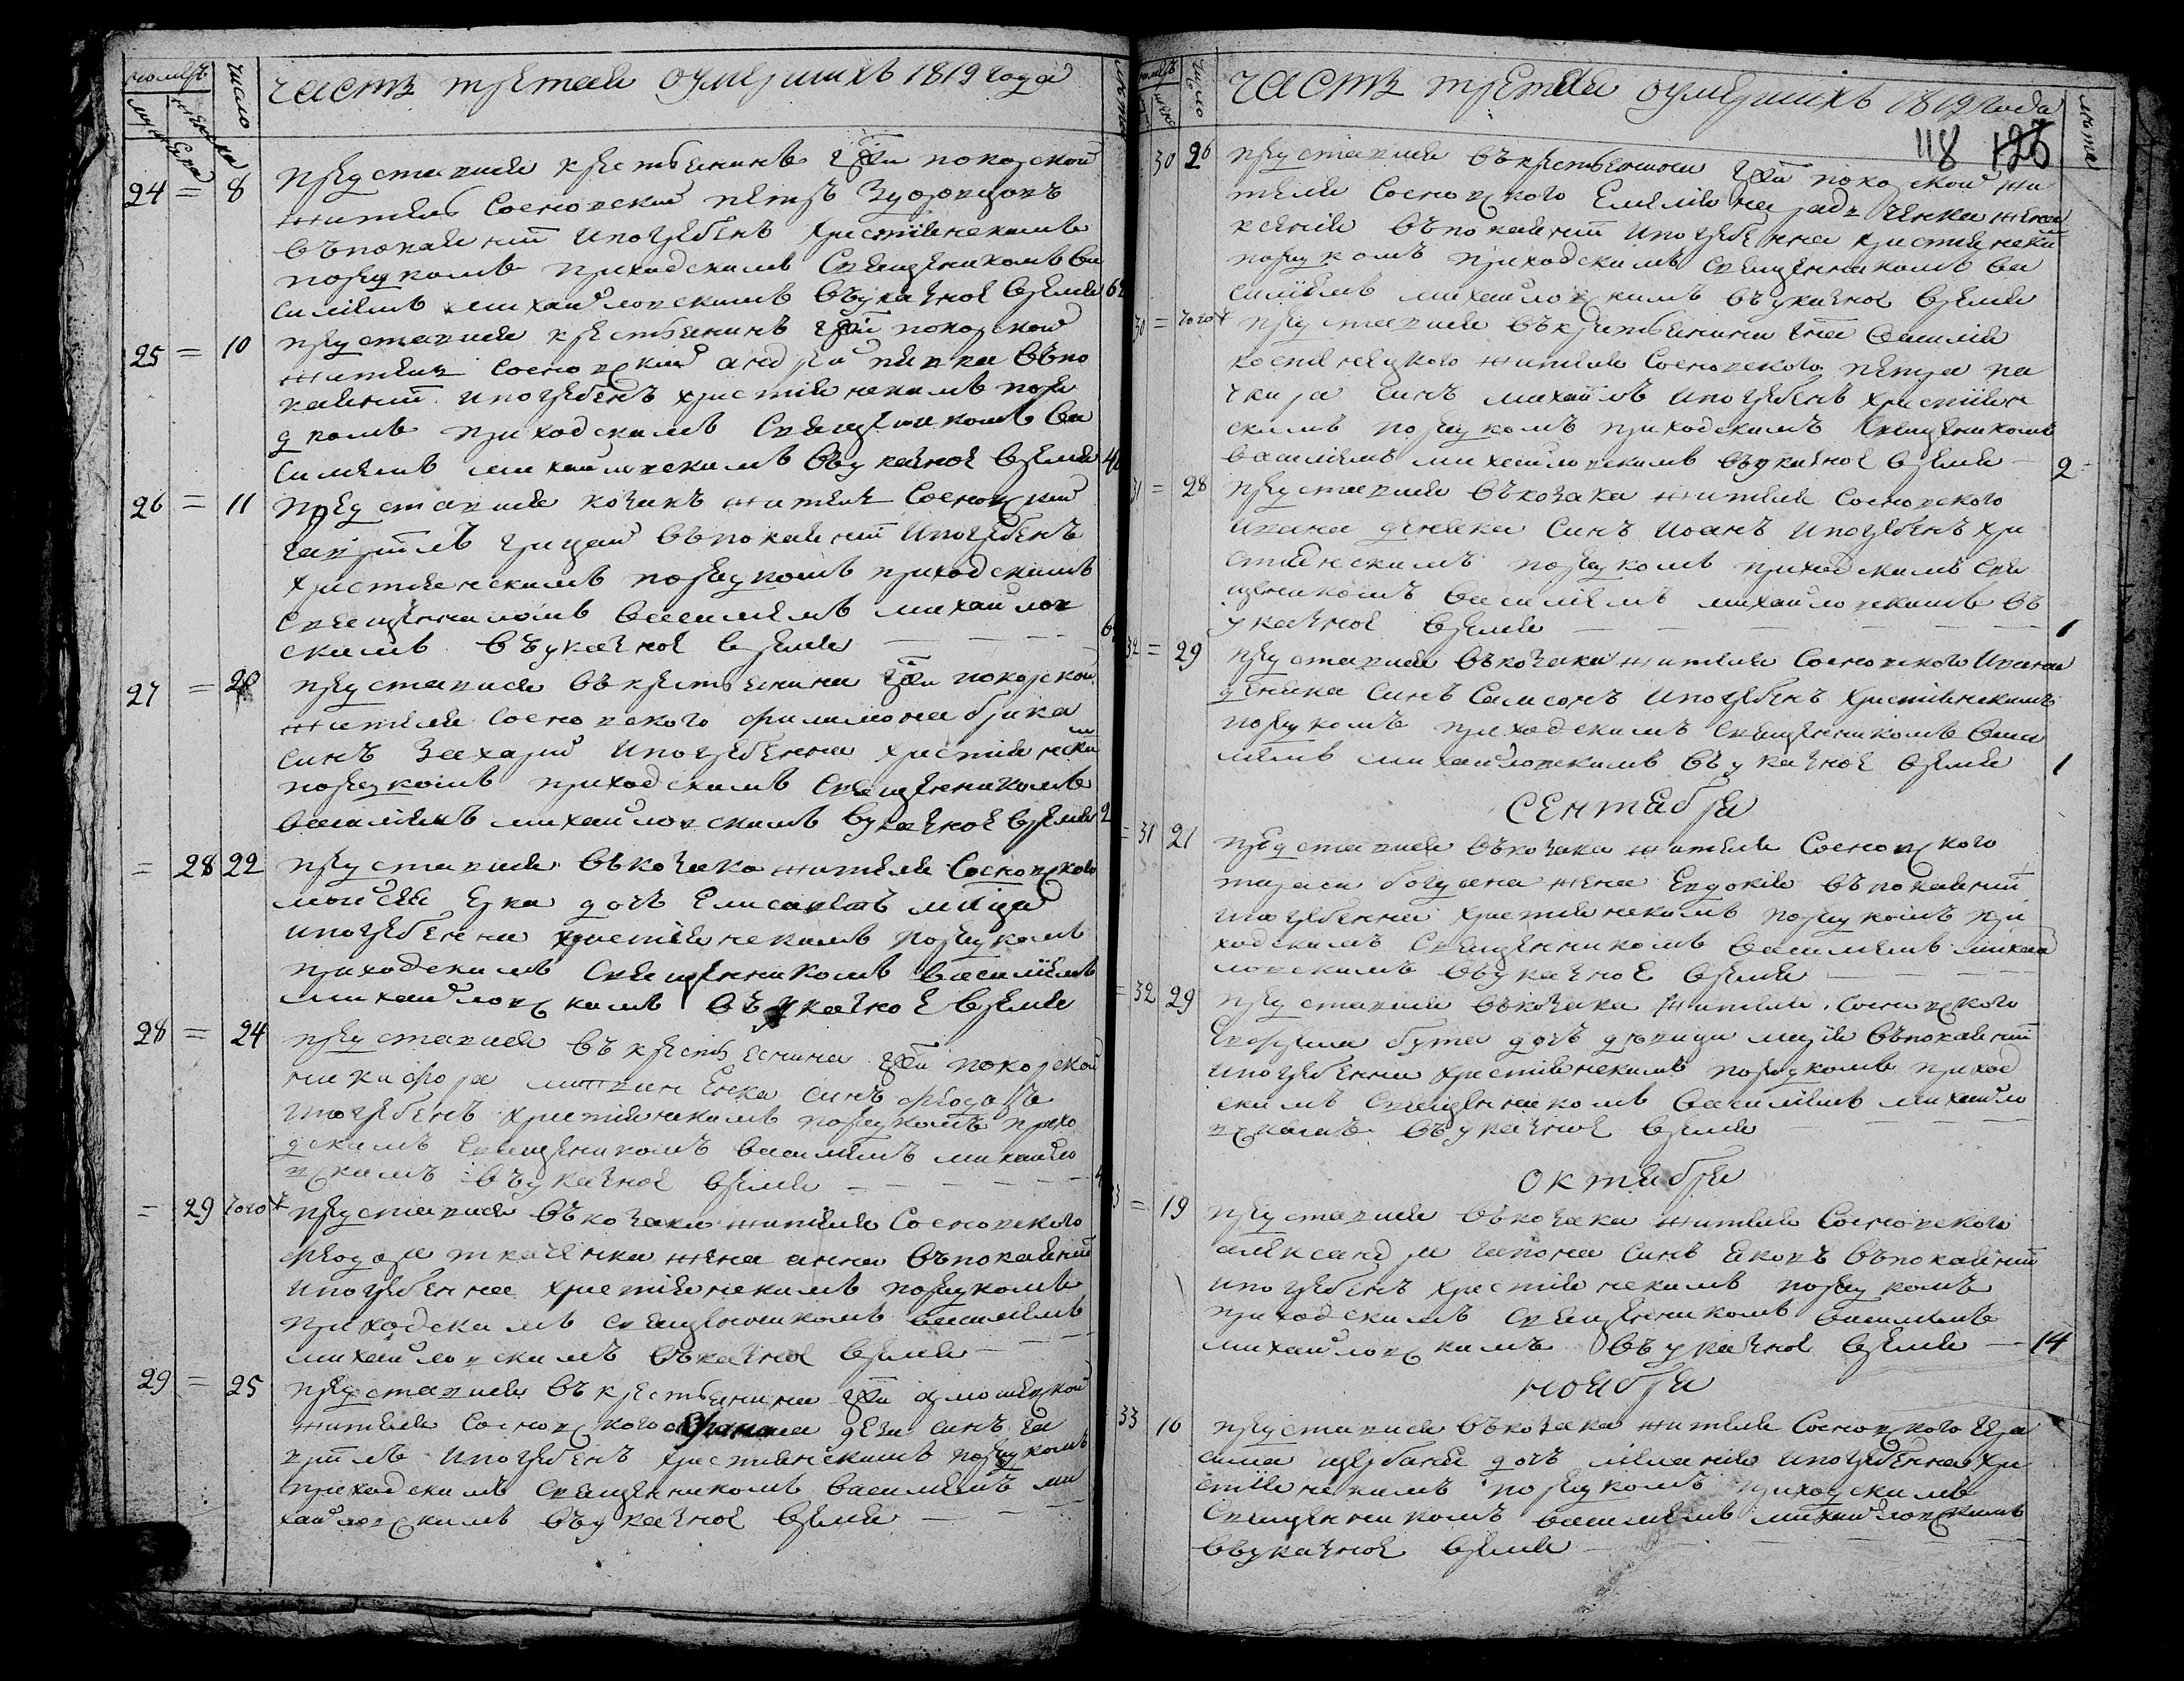 номеръ
число
часть третая оумершихъ 1819 года
24 = 8 представися крестьянинъ гжи покорской
житель Сосновский петръ
въпокаянии ипогребенъ християнскимъ
порядкомъ приходскимъ Священикомъ Ва
силиемъ михайловскимъ въуказное время
25 = 10 представися крестьянинъ гжи покорской
житель Сосновский андрей пявка въпо
каянии ипогребенъ християнскимъ поря
дкомъ приходскимъ Священикомъ Ва
силиемъ михайловскимъ въуказное время
26 = 11 представися козакъ житель Сосновский
гавриилъ грицай въпокаянии ипогребенъ
християнскимъ порядкомъ приходскимъ
Священикомъ василиемъ михайлов
скимъ въуказное время
27 = 20 представися въкрестьянина гжи покорской
жителя Сосновского филимона брика
синъ Захарий ипогребенна християнскимъ
порядкомъ приходскимъ Священникомъ
василиемъ михайловскимъ вуказное время 2
= 28 22 представися въкозака жителя Сосновского
мойсея дочъ Елисаветъ
ипогребенна християнскимъ порядкомъ
приходскимъ Священникомъ василиемъ
михайловскимъ въуказное время
28 = 24 представися въкрестьянина гжи покорской
никифора синъ феодоръ
ипогребенъ християнскимъ порядкомъ прихо
дскимъ Священикомъ василиемъ михайло
вскимъ въуказное время
= 29 тогож представися въкозака жителя Сосновского
феодора ткаченка жена анна въпокаянии
ипогребенна християнскимъ порядкомъ
приходскимъ Священникомъ василиемъ
михайловскимъ въказное время
29 = 25 представися въкрестьянина гжи
жителя Сосновского синъ га
вриилъ ипогребенъ християнскимъ порядкомъ
приходскимъ Священикомъ василиемъ ми
хайловскимъ въуказное время
число
лѣта
часть третая оумершихъ 1819 года
118 126
30 26 представися въкрестьянина гжи покорской жи
теля Сосновского Емелияна жена
ксения въпокаянии ипогребенна християнски
порядкомъ приходскимъ Священникомъ ва
силиемъ михайловскимъ въуказное время
30 = тогож представися въкрестьянина гна василия
жителя Сосновского петра
синъ михаилъ ипогребенъ християн
скимъ порядкомъ приходскимъ Священикомъ
василиемъ михайловскимъ въуказное время 2
31 = 28 представися въкозака жителя Сосновского
ивана синъ иоанъ ипогребенъ хри
стиянскимъ порядкомъ приходскимъ Свя
щеникомъ василиемъ михайловскимъ въ
указное время 1
32 = 29 представися въкозака жителя Сосновского ивана
синъ Самсонъ ипогребенъ християнскимъ
порядкомъ приходскимъ Священникомъ васи
лиемъ михайловскимъ въуказное время 1
Сентября
= 31 21 представися въкозака жителя Сосновского
тараси богдана жена Евдокия въпокаянии
ипогребенна християнскимъ порядкомъ при
ходскимъ Священникомъ василиемъ михай
ловскимъ въуказное время
= 32 29 представися въкозака жителя Сосновского
бута дочъ девица мария въпокаянии
ипогребенна християнскимъ порядкомъ приход
скимъ Священникомъ василиемъ михайло
вскимъ въуказное время
октября
33 = 19 представися въкозака жителя Сосновского
александра гапона синъ яковъ въпокаянии
ипогребенъ християнскимъ порядкомъ
приходскимъ Священникомъ василиемъ
михайловскимъ въуказное время 14
ноября
33 10 представися въкозака жителя Сосновского гера
сима дочъ мелания ипогребенна хри
стиянскимъ порядкомъ приходскимъ
Священникомъ василиемъ михайловскимъ
въуказное время